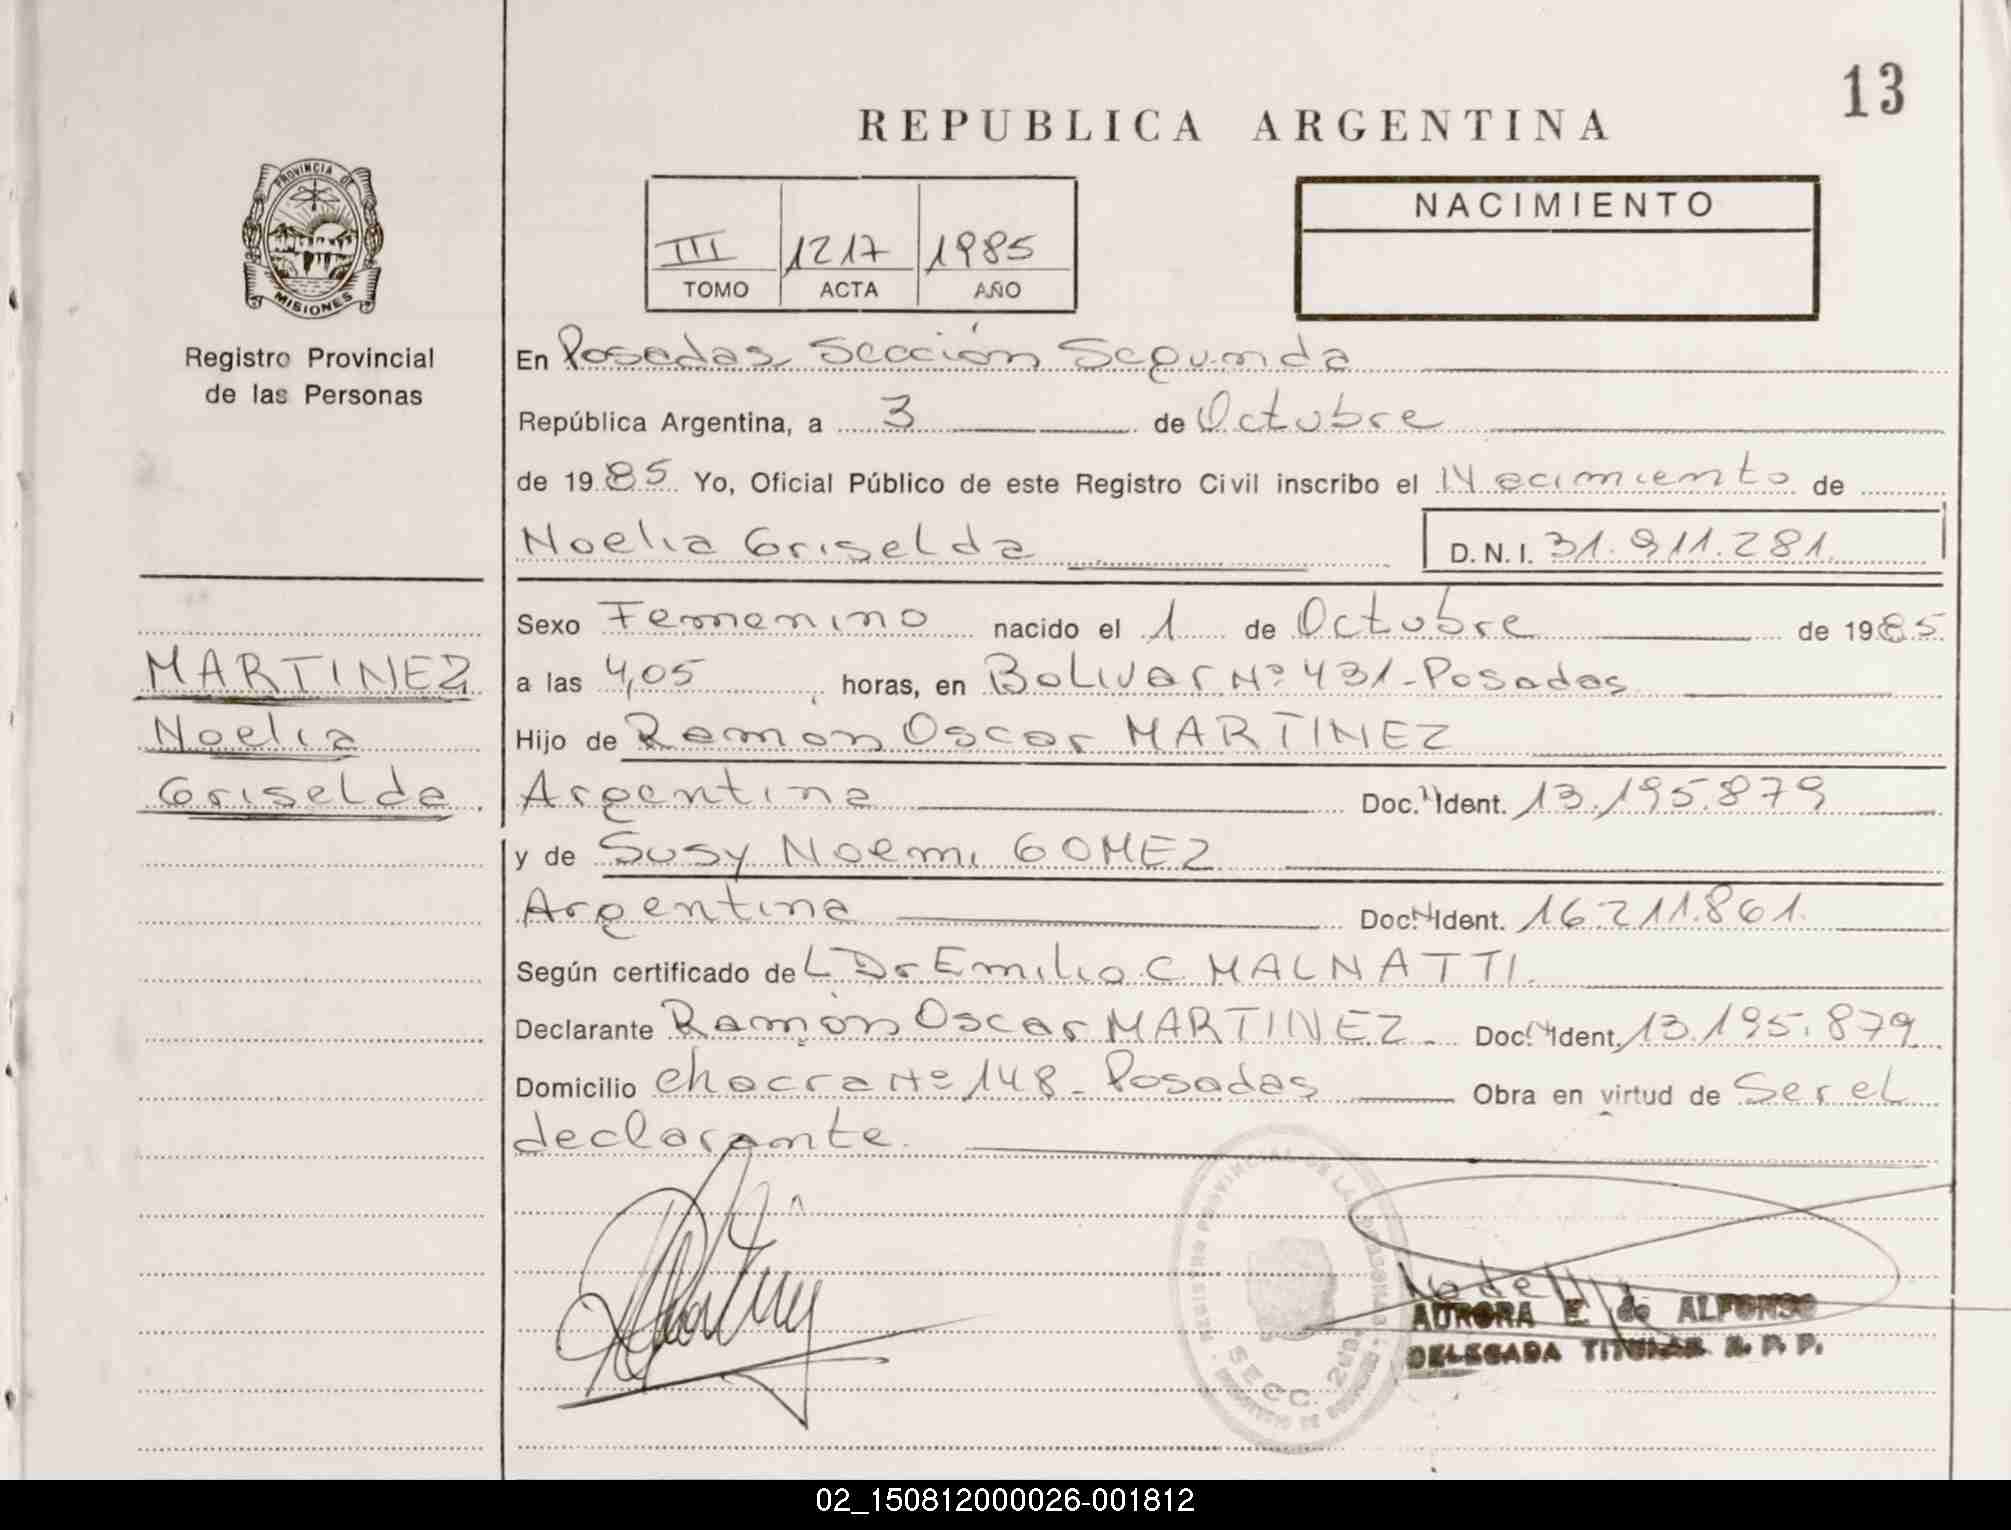 13
REPUBLICA ARGENTINA
PROVINCIA DE
MISIONES
Registro Provincial
de las Personas
III 1217 1985
TOMO ACTA AÑO
NACIMIENTO
En Posadas Sección Segunda
República Argentina, a 3 de Octubre
de 1985 Yo, Oficial Público de este Registro Civil inscribo el Nacimiento de
Noelia Griselda D.N.I. 31.911.281.
Sexo Femenino nacido el 1 de Octubre de 1985
a las 4,05 horas, en Bolivar Nº 431-Posadas
Hijo de Ramón Oscar MARTINEZ
Argentina Doc. N Ident. 13.195.879
y de Susy Noemi GOMEZ
Argentina Doc. N Ident. 16.211.861.
Según certificado de L Dr Emilio C. MALNATTI.
Declarante Ramón Oscar MARTINEZ. Doc. N Ident. 13.195.879
Domicilio chacra Nº 148- Posadas Obra en virtud de Ser el
declarante.
MARTINEZ
Noelia
Griselda.
SECC. 2da.
AURORA E. de ALFONSO
DELEGADA TITULAR R. P. P.
02_150812000026-001812